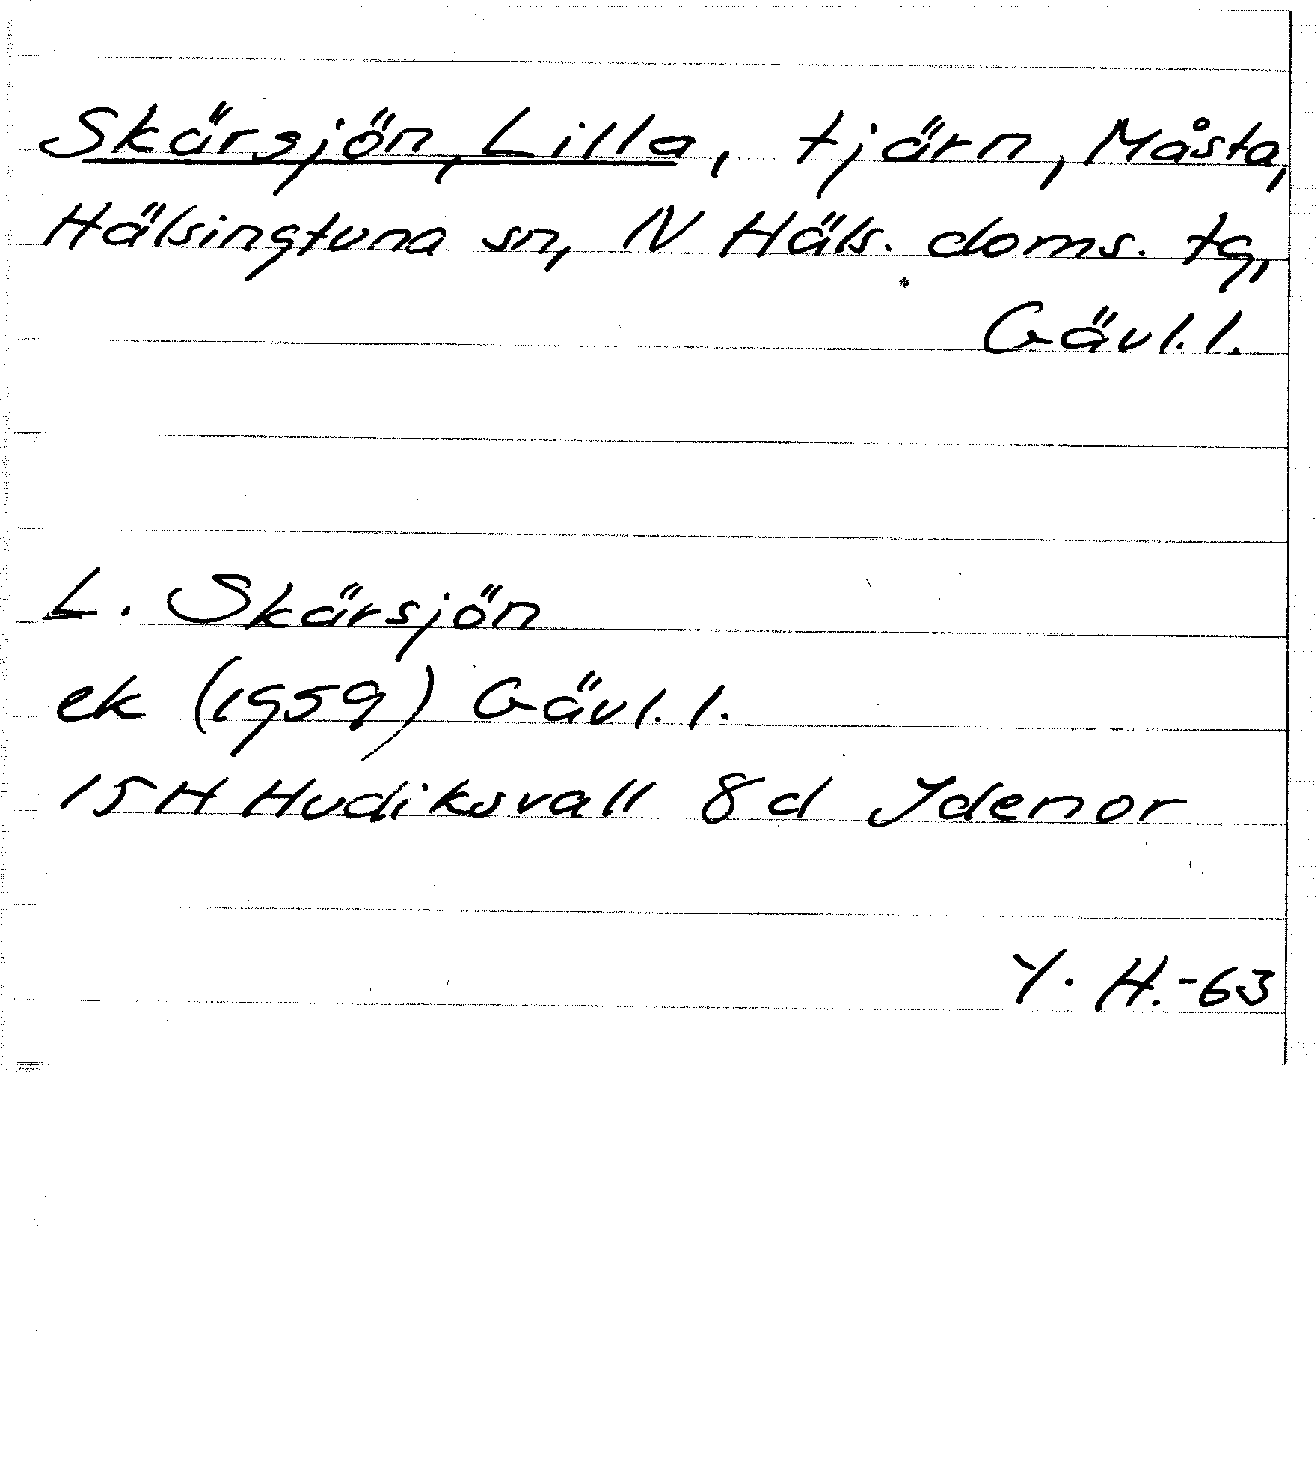 Skärsjön, Lilla, tjärn, Måsta,
Hälsingtuna sn, N Häls. doms. tg,
Gävl. l.
L. Skärsjön
ek (1959) Gävl. l.
15H Hudiksvall 8d Idenor
Y. H.-63